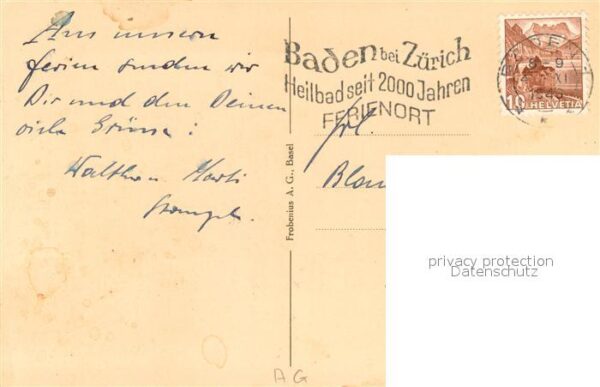 Aus unsern
Ferien senden wir
Dir und den Deinen
viele Grüsse!
Walther u. Marti
Baden bei Zürich
Heilbad seit 2000 Jahren
FERIENORT
BADEN
9
XI
10 HELVETIA
Frl.
Frobenius A. G., Basel
privacy protection
Datenschutz
AG